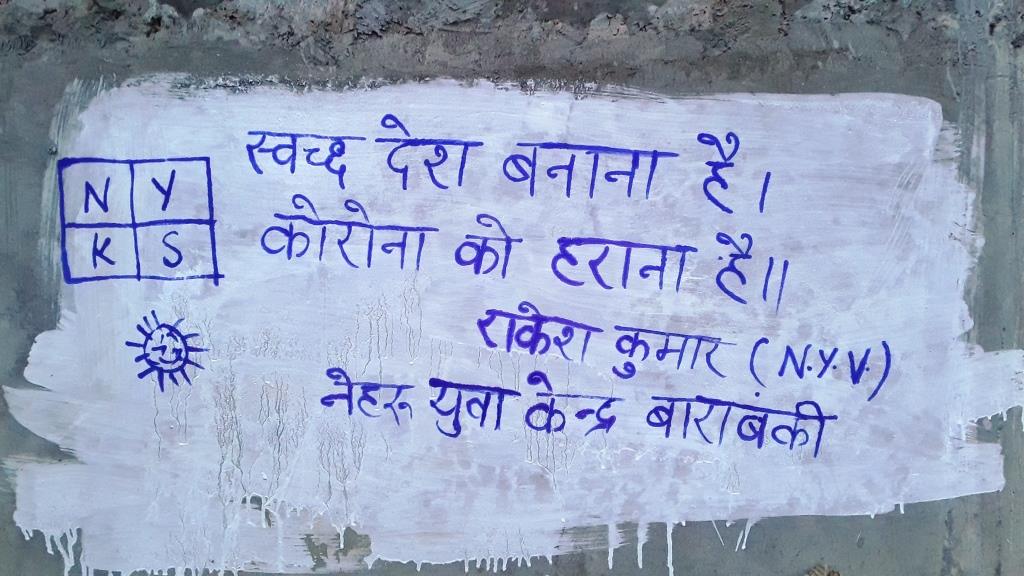 N Y
K S
स्वच्छ देश बनाना है।
कोरोना को हराना है॥
राकेश कुमार (N.Y.V.)
नेहरू युवा केन्द्र बाराबंकी